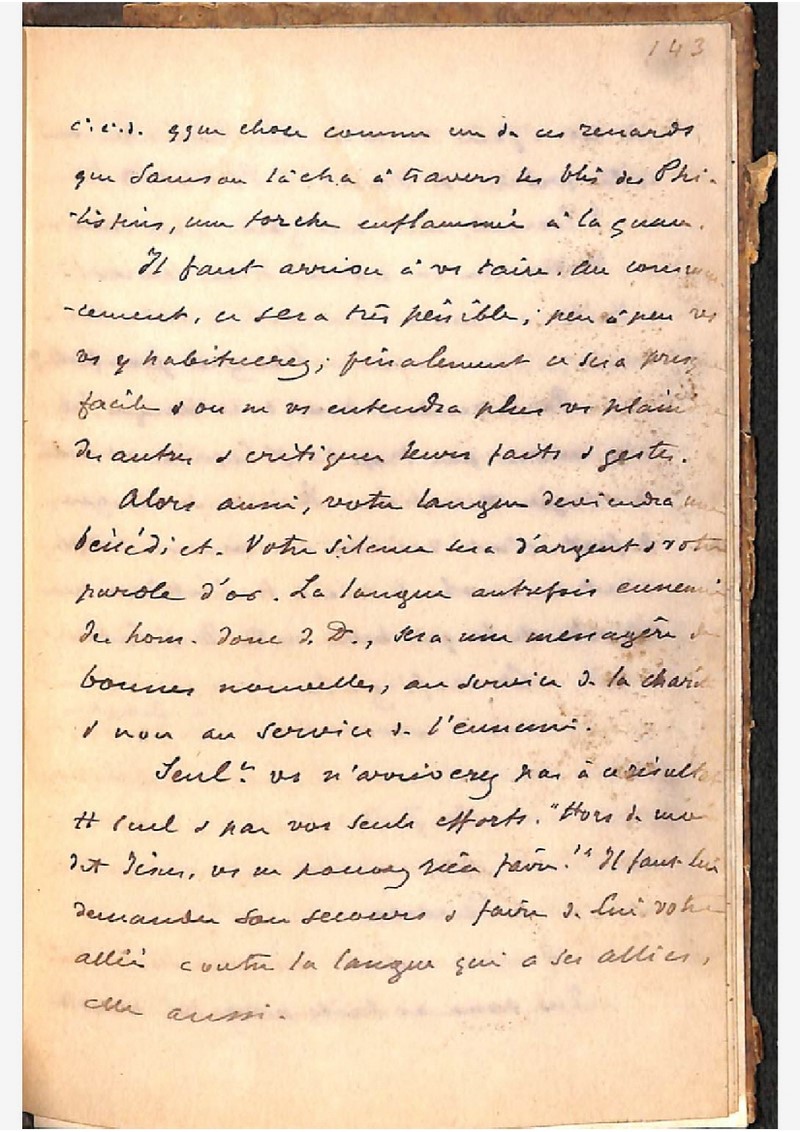 143
c.à.d. qque chose comme un de ces renards
que Samson lâcha à travers les blés des Phi-
-listins, une torche enflammée à la queue.
Il faut arriver à vs taire. Au commen-
-cement, ce sera très pénible; peu à peu vs
vs y habituerez; finalement ce sera presq
facile & on ne vs entendra plus vs plaindre
des autres & critiquer leurs faits & gestes.
Alors aussi, votre langue deviendra une
bénédict. Votre silence sera d'argent & votre
parole d'or. La langue autrefois ennemie
des hom. donc d. D., sera une messagère de
bonnes nouvelles, au service d. la charité
& non au service d. l'ennemi.
Seul.t vs n'arriverez pas à ce résultat
tt seul & par vos seuls efforts. "Hors de moi
dit Jésus, vs ne pouvez rien faire!" Il faut lui
demander son secours & faire d. lui votre
allié contre la langue qui a ses alliés,
elle aussi.